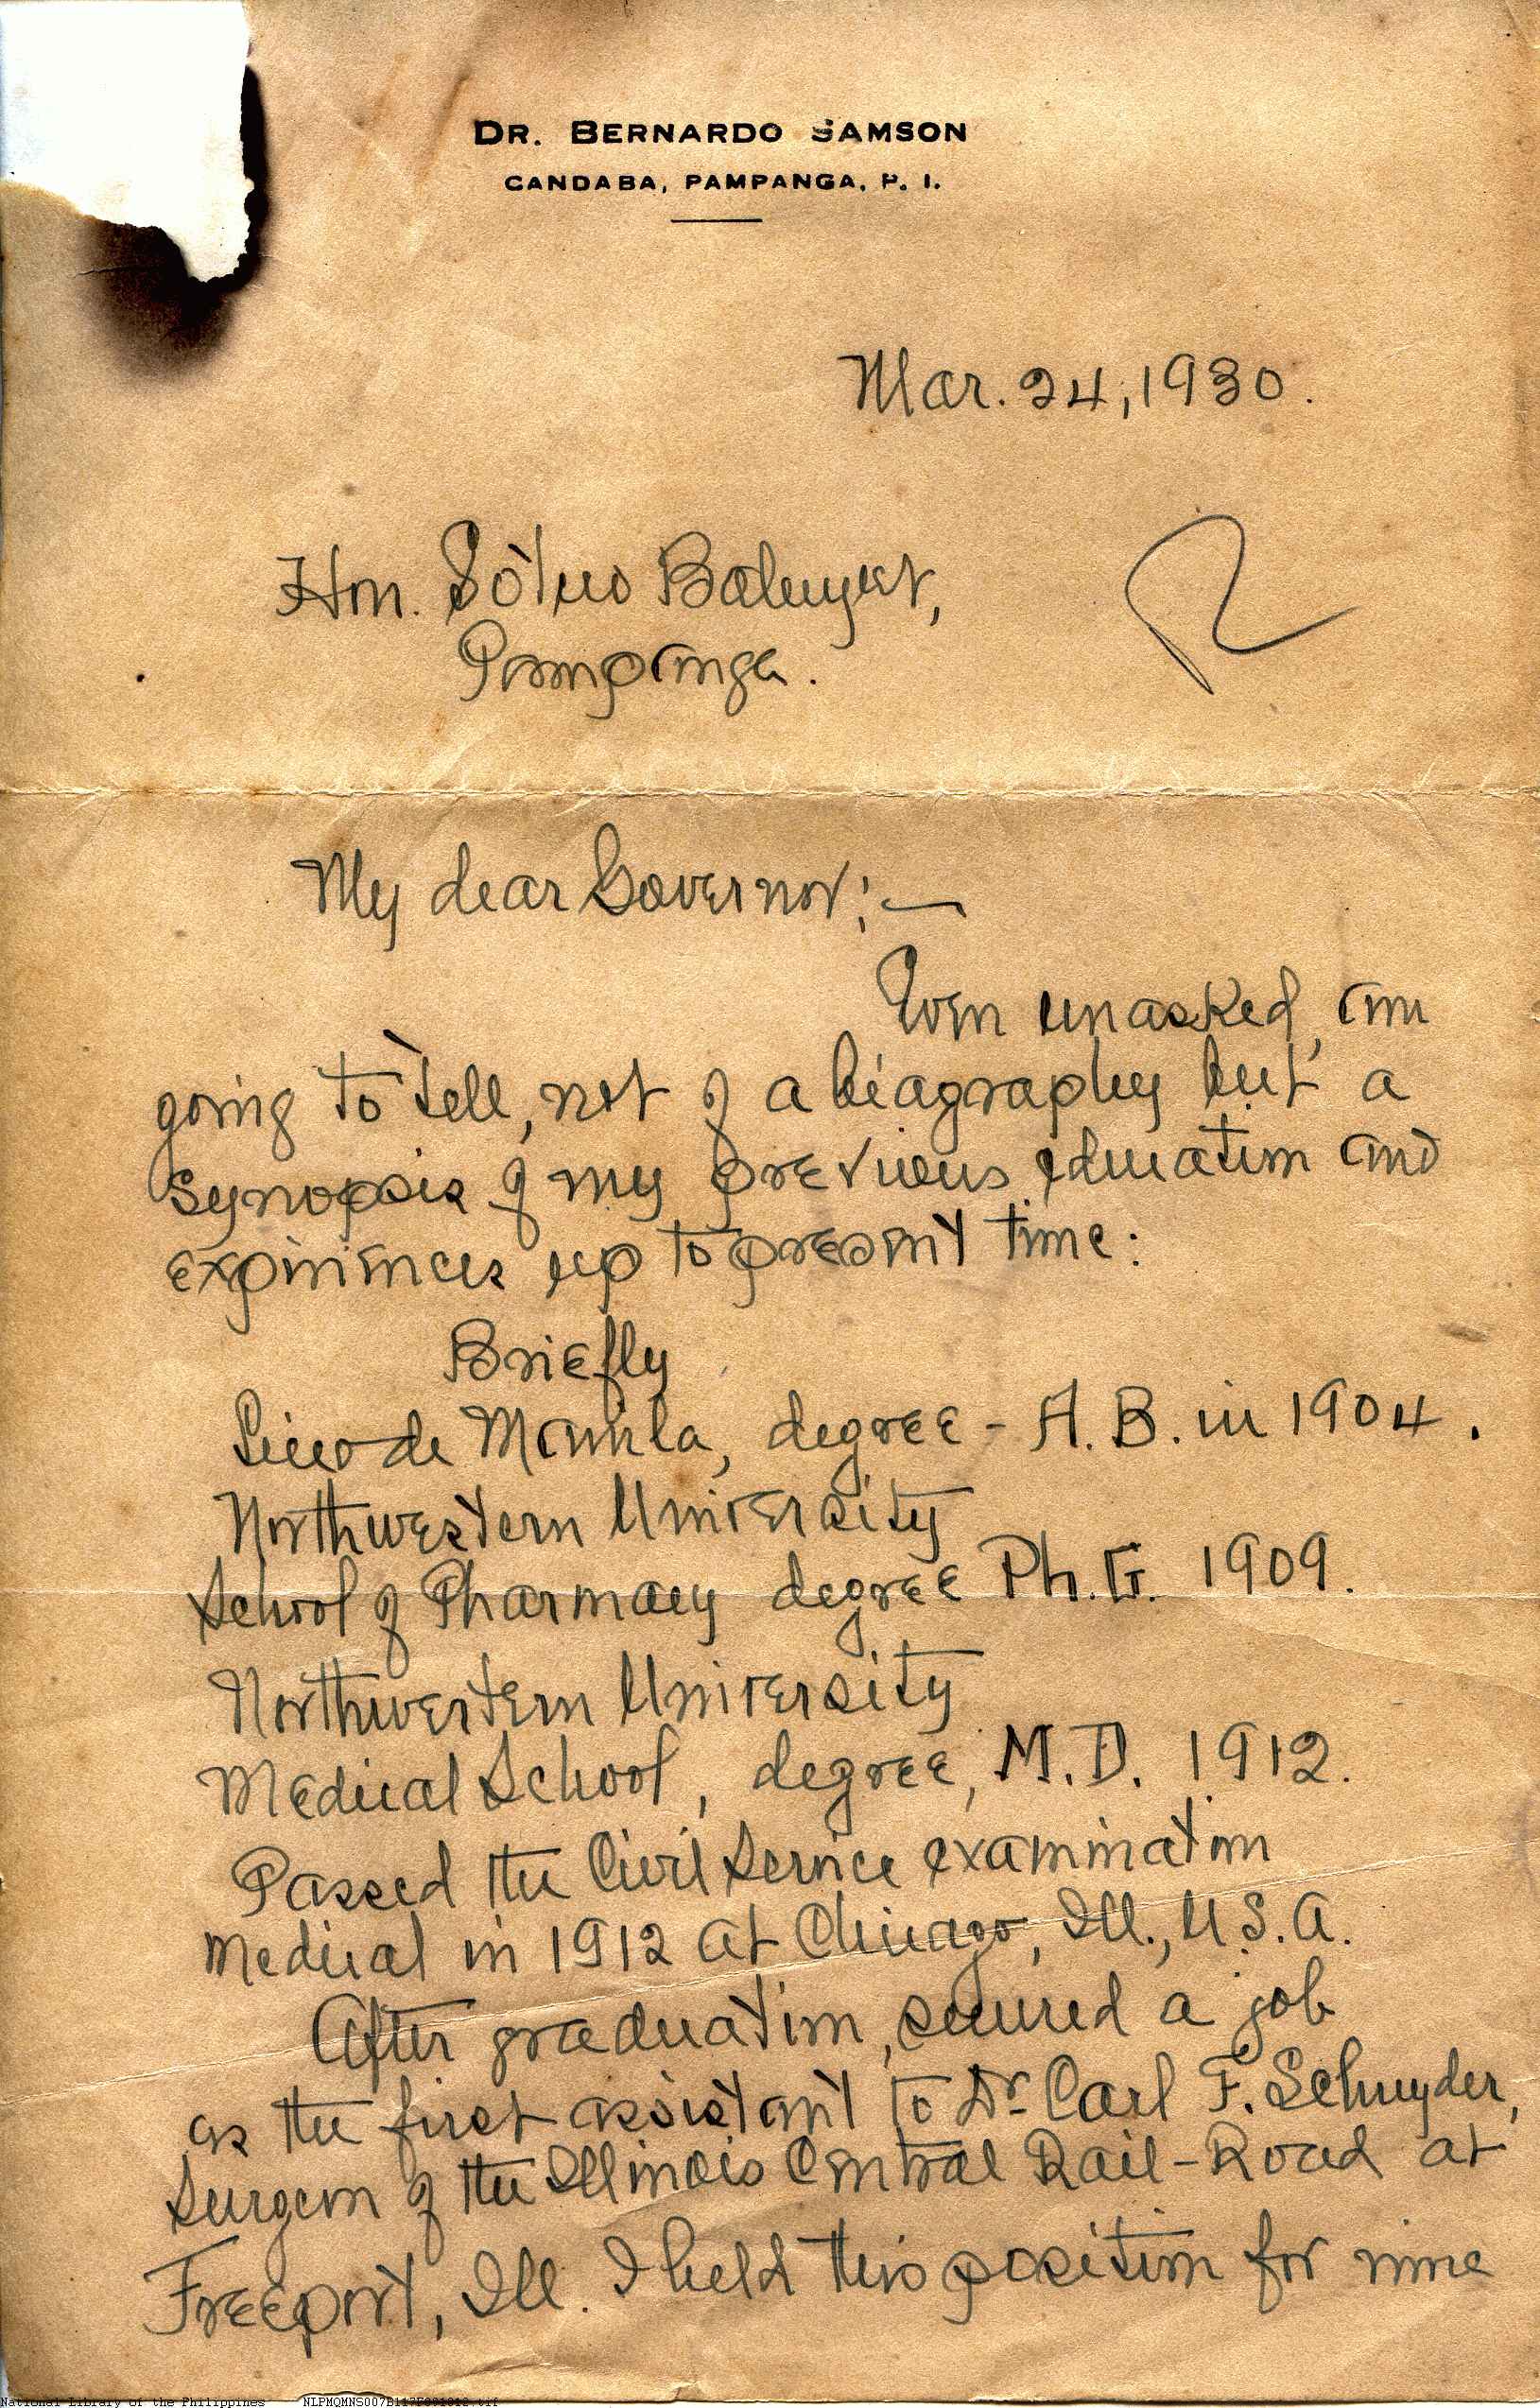 DR. BERNARDO SAMSON
CANDABA, PAMPANGA, P. I.
Mar. 24, 1930.
Hon. Sotero Baluyut,
Pampanga.
R
My dear Governor:—
Even unasked, am
going to tell, not of a biography but a
synopsis of my previous education and
experiences up to present time:
Briefly
Liceo de Manila, degree - A. B. in 1904.
Northwestern University
School of Pharmacy degree Ph. G. 1909.
Northwestern University
Medical School, degree, M. D. 1912.
Passed the Civil Service examination
medical in 1912 at Chicago, Ill., U. S. A.
After graduation, secured a job
as the first assistant to Dr. Carl F. Schnyder,
surgeon of the Illinois Central Rail-Road at
Freeport, Ill. I held this position for nine
National Library of the Philippines